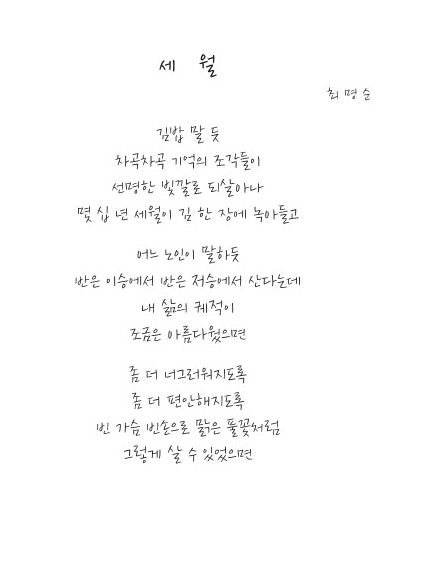 세 월
최명순
김밥 말 듯
차곡차곡 기억의 조각들이
선명한 빛깔로 되살아나
몇 십 년 세월이 김 한 장에 녹아들고
어느 노인이 말하듯
반은 이승에서 반은 저승에서 산다는데
내 삶의 궤적이
조금은 아름다웠으면
좀 더 너그러워지도록
좀 더 편안해지도록
빈 가슴 빈손으로 맑은 풀꽃처럼
그렇게 살 수 있었으면